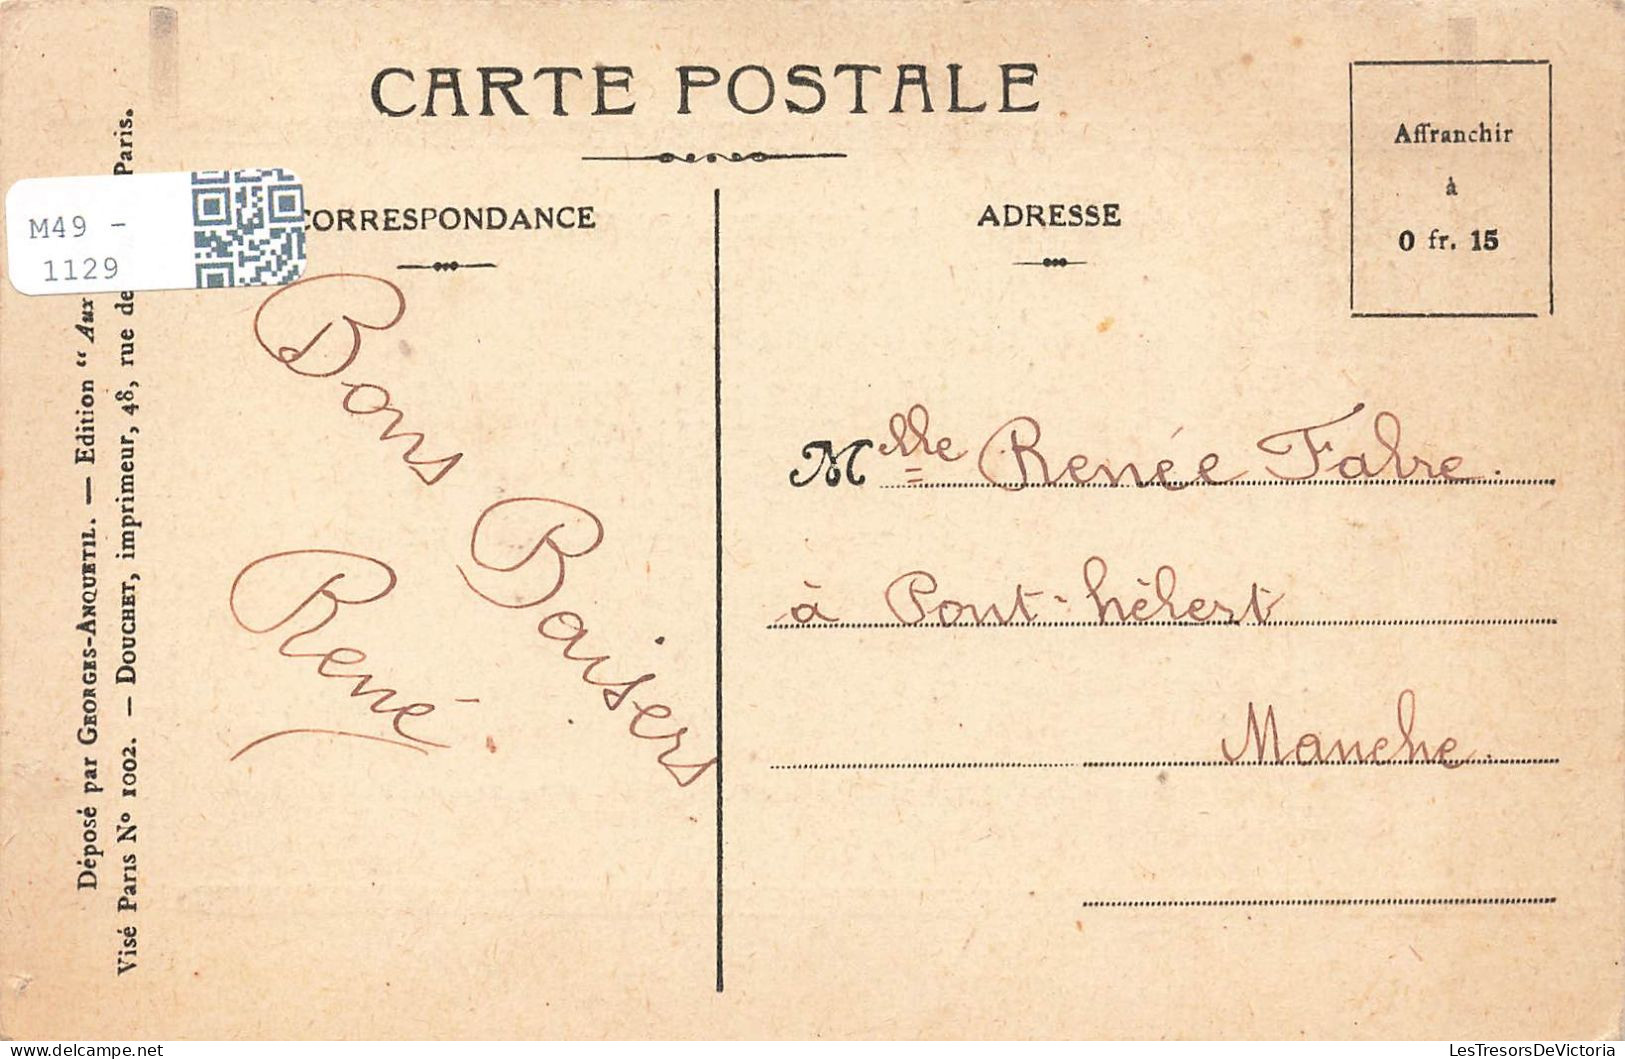 CARTE POSTALE
CORRESPONDANCE
ADRESSE
Affranchir
à
0 fr. 15
M49 -
1129
Déposé par GEORGES-ANQUETIL. — Edition “ Aux
Visé PARIS N° 1002. — DOUCHET, imprimeur, 48, rue de Paris.
Bons Baisers
René
Mlle Renée Fabre.
à Pont-hébert
Manche.
LesTresorsDeVictoria